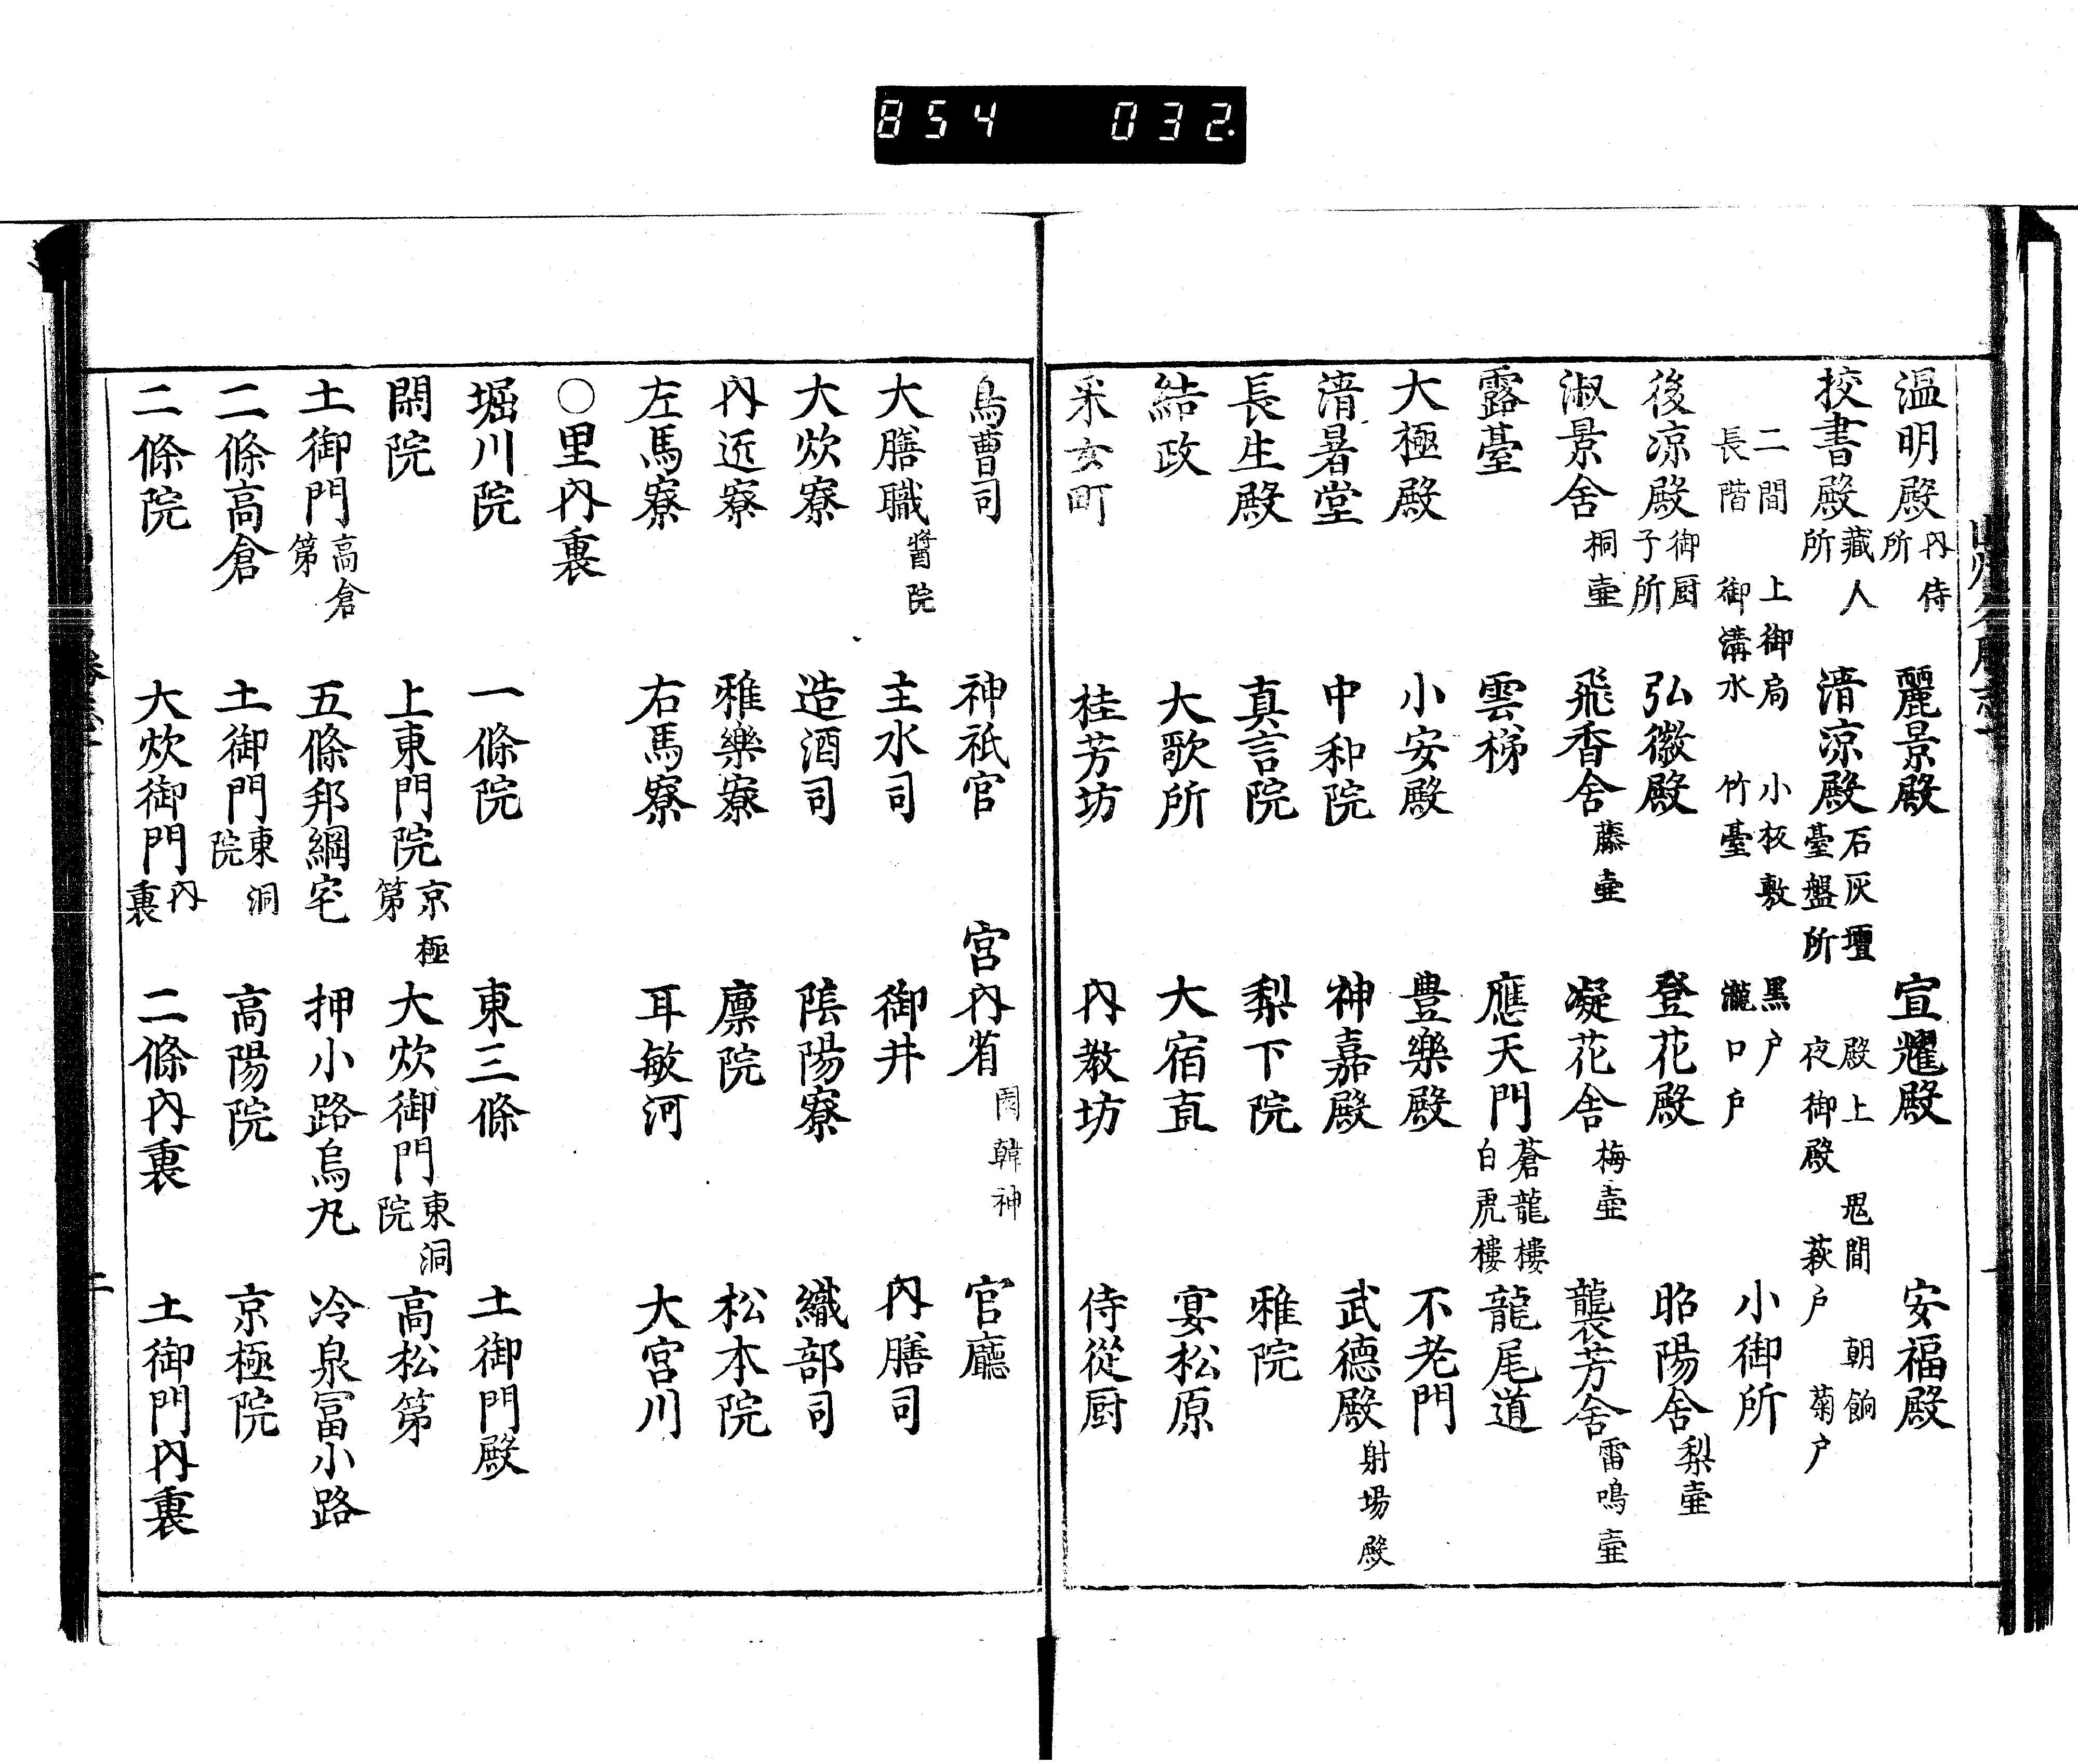 854 032.
温明殿 内侍所 麗景殿 宣耀殿 安福殿
挍書殿 藏人所 清凉殿 石灰壇 臺盤所 殿上 夜御殿 鬼間 萩戸 朝餉 菊戸
二間 長階 上御局 御溝水 小板敷 竹臺 黒戸 瀧口戸 小御所
後凉殿 御厨子所 弘徽殿 登花殿 昭陽舎 梨壷
淑景舎 桐壷 飛香舎 藤壷 凝花舎 梅壷 襲芳舎 雷鳴壷
露臺 雲梯 應天門 蒼龍樓 白虎樓 龍尾道
大極殿 小安殿 豊樂殿 不老門
清暑堂 中和院 神嘉殿 武德殿 射場殿
長生殿 真言院 梨下院 雅院
結政 大歌所 大宿直 宴松原
采女町 桂芳坊 内教坊 侍從厨
鳥曹司 神祇官 宮内省 園韓神 官廳
大膳職 醬院 主水司 御井 内膳司
大炊寮 造酒司 陰陽寮 織部司
内匠寮 雅樂寮 廩院 松本院
左馬寮 右馬寮 耳敏河 大宮川
○里内裏
堀川院 一條院 東三條 土御門殿
閑院 上東門院 京極第 大炊御門 東洞院 高松第
土御門 高倉第 五條邦綱宅 押小路烏丸 冷泉冨小路
二條高倉 土御門 東洞院 高陽院 京極院
二條院 大炊御門 内裏 二條内裏 土御門内裏
二